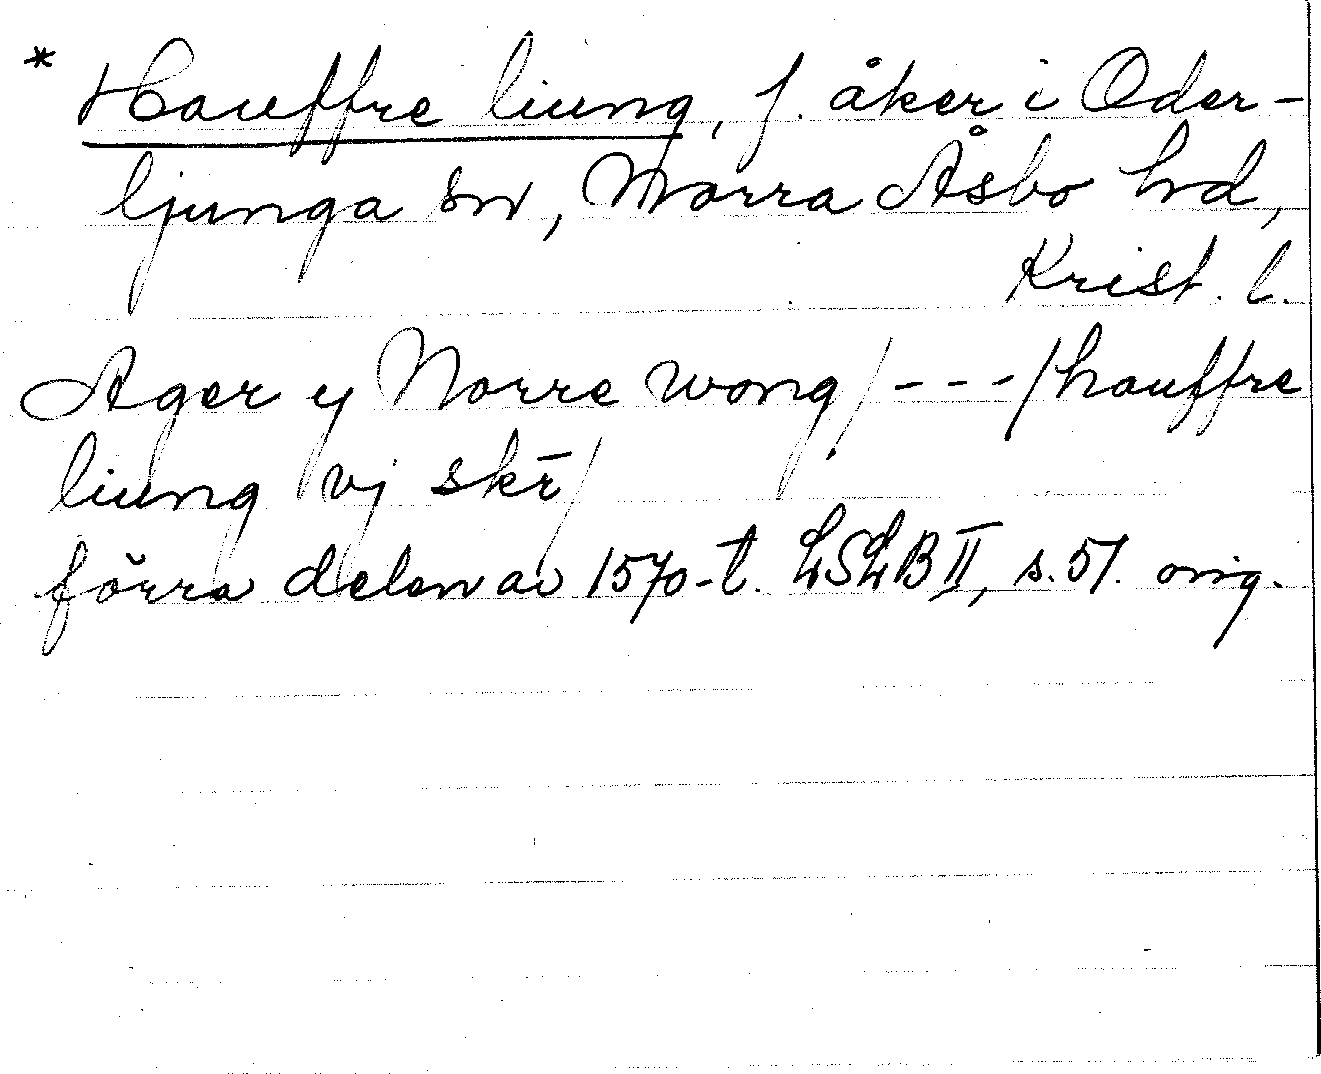 * Hauffre liung, f. åker i Oder-
ljunga sn, Norra Åsbo hd,
Krist. l.
Ager y Norre wong/---/hauffre
liung vj skr̄/
förra delen av 1570-t. LSLB II, s. 51. orig.